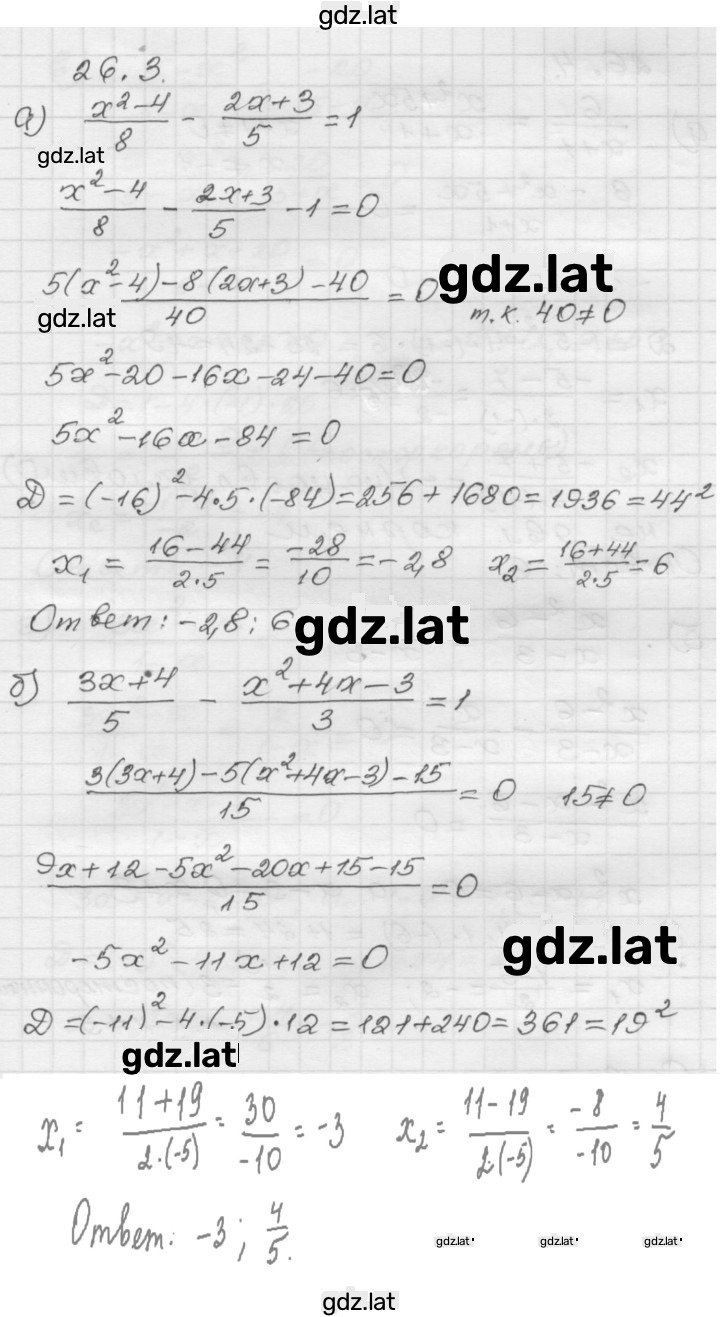 gdz.lat
26.3.
а) (x²-4)/8 - (2x+3)/5 = 1
gdz.lat
(x²-4)/8 - (2x+3)/5 - 1 = 0
gdz.lat
(5(x²-4)-8(2x+3)-40)/40 = 0 т.к. 40≠0
gdz.lat
5x²-20-16x-24-40=0
5x²-16x-84=0
Д=(-16)²-4·5·(-84)=256+1680=1936=44²
x₁ = (16-44)/(2·5) = (-28)/10 = -2,8 x₂ = (16+44)/(2·5) = 6
Ответ: -2,8; 6
gdz.lat
б) (3x+4)/5 - (x²+4x-3)/3 = 1
(3(3x+4)-5(x²+4x-3)-15)/15 = 0 15≠0
(9x+12-5x²-20x+15-15)/15 = 0
gdz.lat
-5x²-11x+12=0
Д=(-11)²-4·(-5)·12=121+240=361=19²
gdz.lat
x₁ = (11+19)/(2·(-5)) = 30/-10 = -3 x₂ = (11-19)/(2·(-5)) = -8/-10 = 4/5
Ответ: -3; 4/5.
gdz.lat gdz.lat gdz.lat
gdz.lat